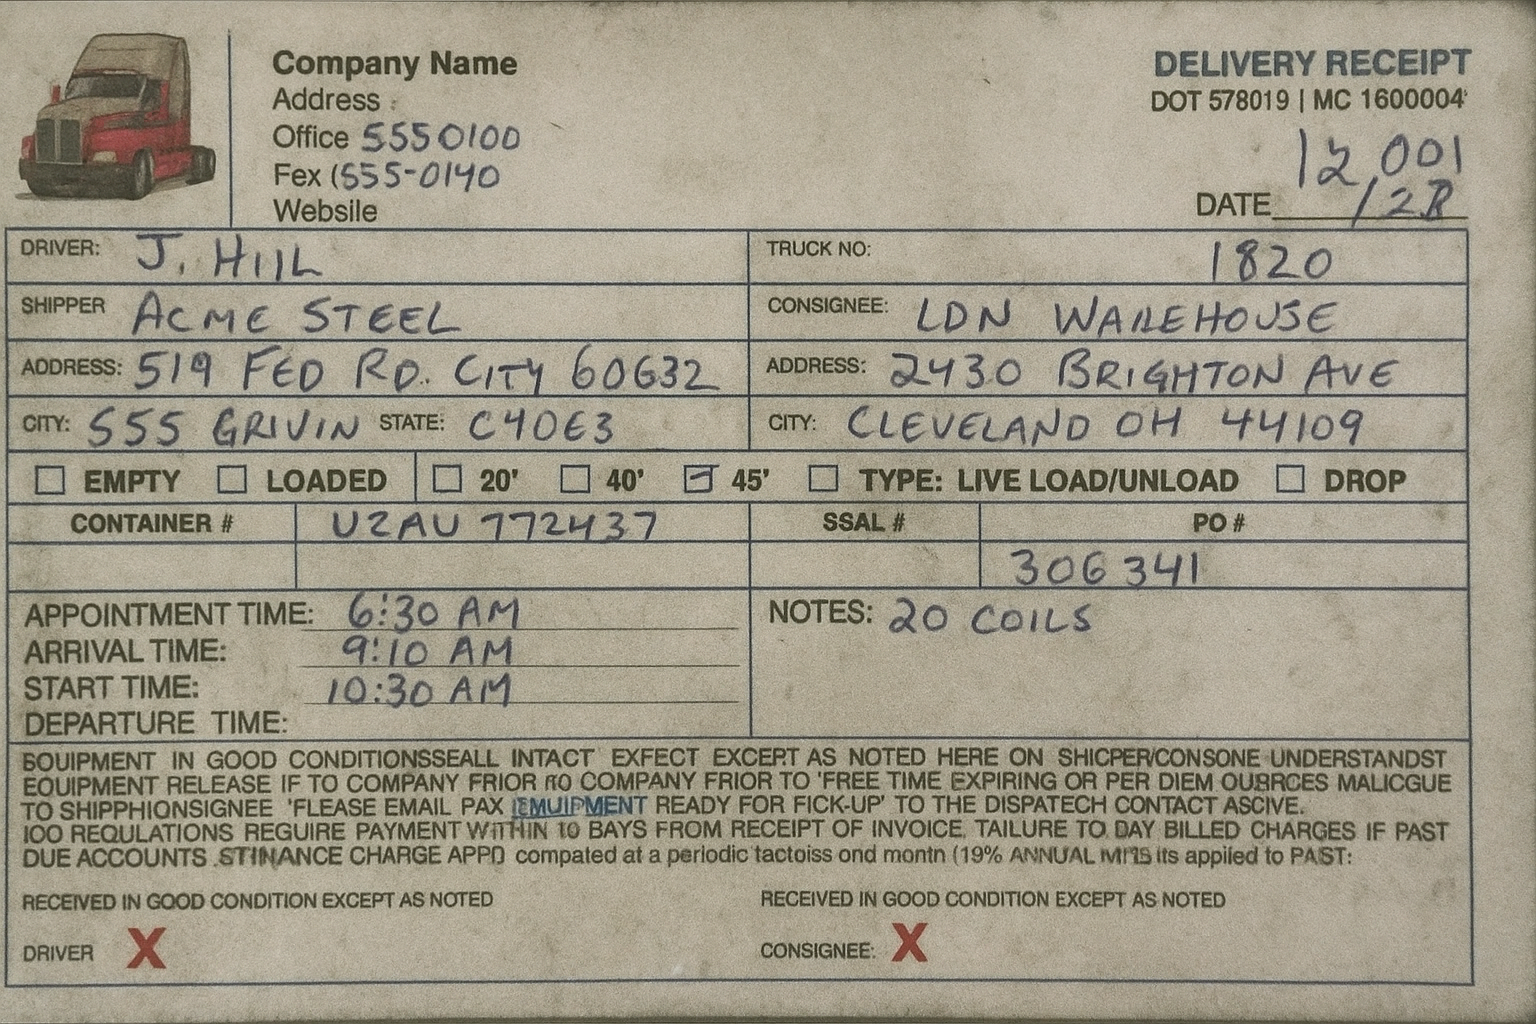 Company Name
DELIVERY RECEIPT
Address :
DOT 578019 | MC 1600004
Office 5550100
12,001
Fex (555-0140
DATE /2
Websile
DRIVER: J. HIIL
TRUCK NO: 1820
SHIPPER ACME STEEL
CONSIGNEE: LDN WAREHOUSE
ADDRESS: 519 FED RD. CITY 60632
ADDRESS: 2430 BRIGHTON AVE
CITY: 555 GRIVIN STATE: C40E3
CITY: CLEVELAND OH 44109
EMPTY LOADED 20' 40' 45' TYPE: LIVE LOAD/UNLOAD DROP
CONTAINER # UZAU 772437 SSAL # PO #
306 341
APPOINTMENT TIME: 6:30 AM
NOTES: 20 COILS
ARRIVAL TIME: 9:10 AM
START TIME: 10:30 AM
DEPARTURE TIME:
BOUIPMENT IN GOOD CONDITIONSSEALL INTACT EXFECT EXCEPT AS NOTED HERE ON SHICPER/CONSONE UNDERSTANDST
EOUIPMENT RELEASE IF TO COMPANY FRIOR COMPANY FRIOR TO 'FREE TIME EXPIRING OR PER DIEM OUBRCES MALICGUE
TO SHIPPHIONSIGNEE 'FLEASE EMAIL PAX EMUIPMENT READY FOR FICK-UP' TO THE DISPATECH CONTACT ASCIVE.
IOO REQULATIONS REGUIRE PAYMENT WITHIN 10 BAYS FROM RECEIPT OF INVOICE, TAILURE TO DAY BILLED CHARGES IF PAST
DUE ACCOUNTS .STINANCE CHARGE APPD compated at a periodic tactoiss ond montn (19% ANNUAL its appiled to PAST:
RECEIVED IN GOOD CONDITION EXCEPT AS NOTED
RECEIVED IN GOOD CONDITION EXCEPT AS NOTED
DRIVER X
CONSIGNEE: X